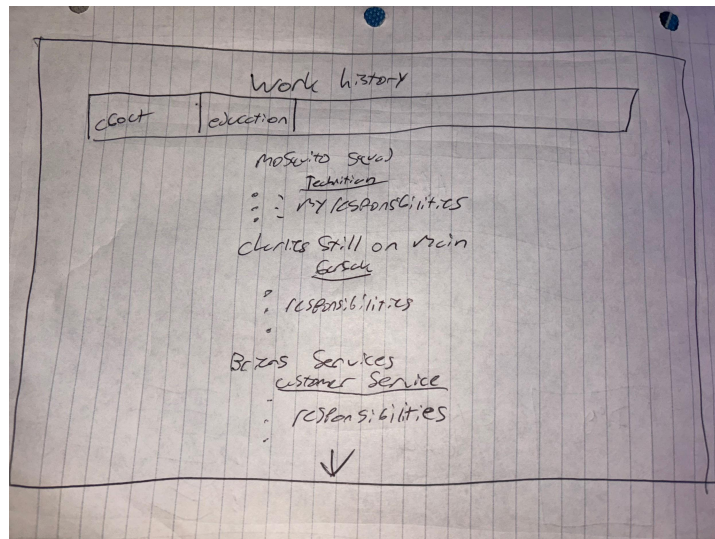 Work history
about education
Mosquito Squad
Technition
my responsibilities
charlies Still on Main
responsibilities
Services
customer Service
responsibilities